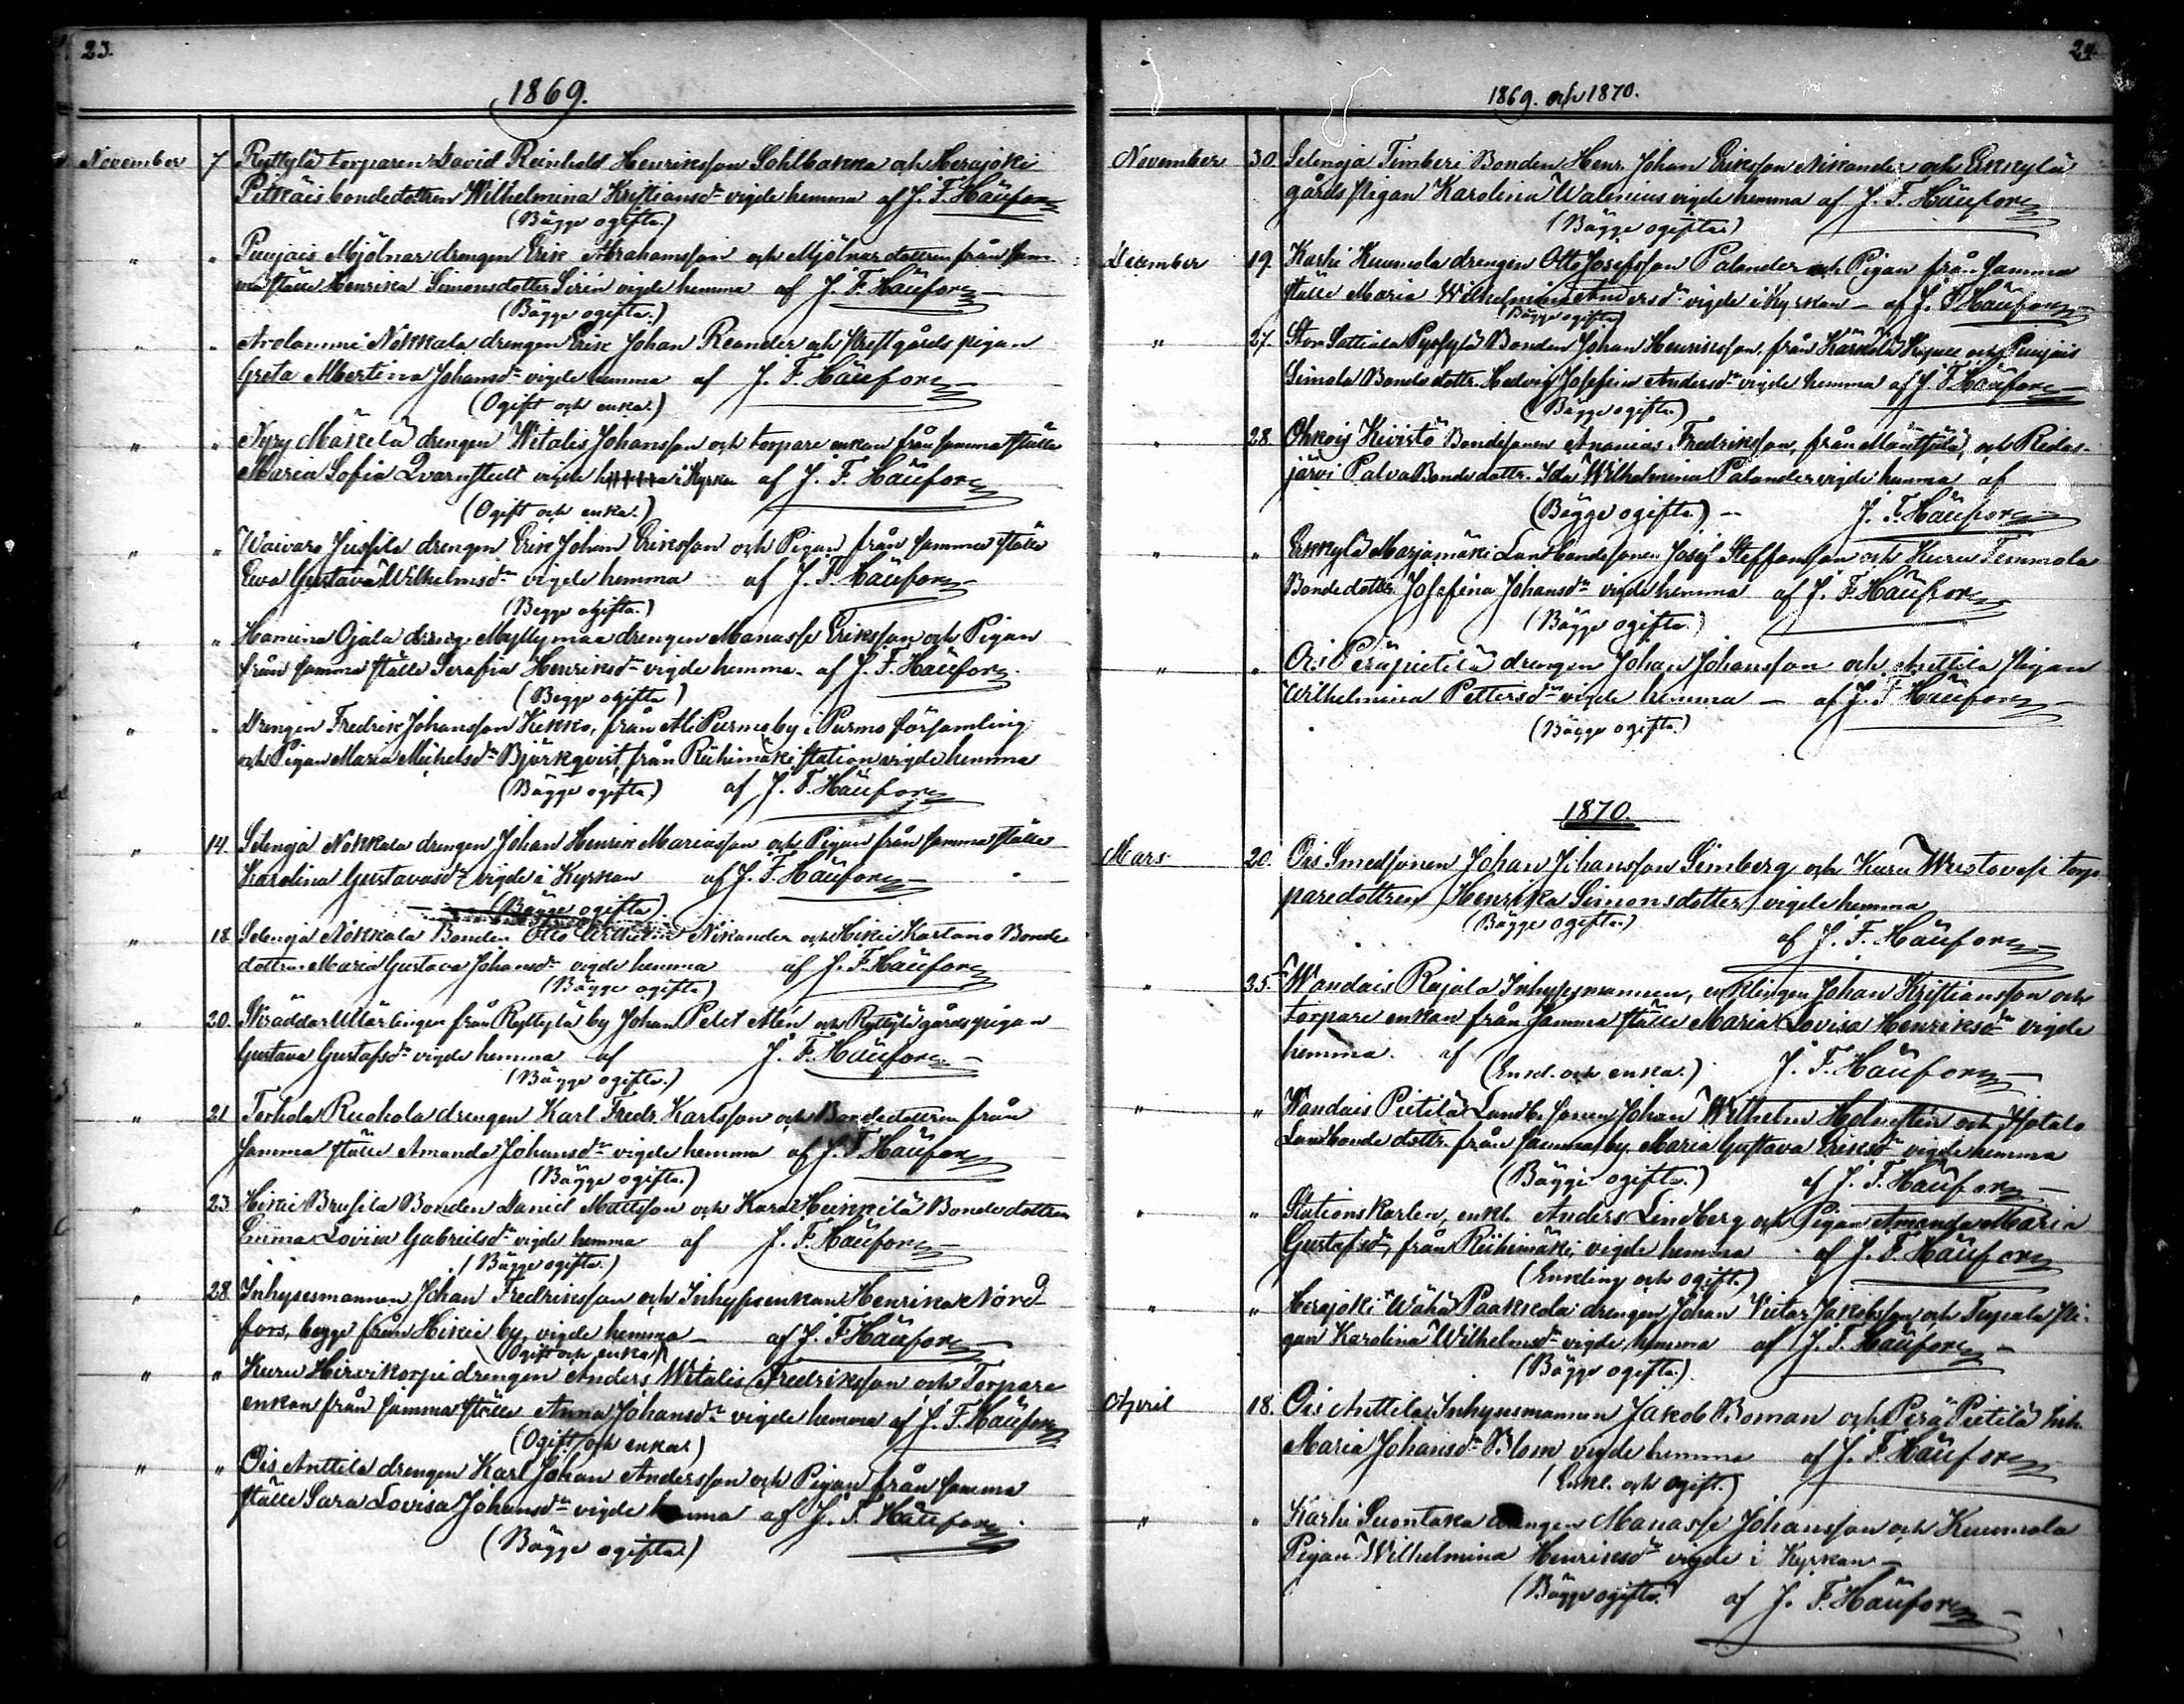 23.
1869.
November 7 Ryttylä torparen David Reinhold Henriksson Sohlbakka och Herajoki
Pitkäis bondedottren Wilhelmina Kristiansdr vigde hemma af J. F. Häüfors
(Bägge ogifta)
" " Puujais Mjölnar drengen Erik Abrahamsson och Mjölnar dottren från sam-
ma ställe Henrika Simonsdotter Sirén vigde hemma af J. F. Häüfors
(Bägge ogifta.)
" " Arolammi Nokkala drengen Erik Johan Reander och Prestgårds pigan
Greta Albertina Johansdr vigde hemma af J. F. Häüfors
(Ogift och enka.)
" " Nyry Mäkelä drengen Witalis Johansson och torpare enkan från samma ställe
Maria Sofia Qvarnstedt vigde i Kyrkan af J. F. Häüfors
(Ogift och enka.)
" " Waivaro Jussila drengen Erik Johan Eriksson och Pigan från samma ställe
Ewa Gustava Wilhelmsdr vigde hemma af J. F. Häüfors
(Begge ogifta.)
" " Hamina Ojala Myllymaa drengen Manasse Eriksson och Pigan
från samma ställe Serafia Henriksdr vigde hemma af J. F. Häüfors
(Begge ogifta)
" " Drengen Fredrik Johansson Kekko, från Ala Purmo by i Purmo församling
och Pigan Maria Michelsdr Björkqvist, från Riihimäki station vigde hemma
(Bägge ogifta.) af J. F. Häüfors
" 14. Selenjä Nokkala drengen Johan Henrik Mariasson och Pigan från samma ställe
Karolina Gustavasdr vigde i Kyrkan af J. F. Häüfors
(Bägge ogifta)
" 18 Selenjä Nokkala Bonden Otto Wilhelm Nikander och Hikiä Kartano Bonde
dottren Maria Gustava Johansdr vigde hemma af J. F. Häüfors
(Bägge ogifta)
" 20. Skräddar lärlingen från Ryttylä by Johan Petet Alén och Ryttylä gårds pigan
Gustava Gustafsdr vigde hemma af J. F. Häüfors
(Bägge ogifta.)
" 21 Torhola Ruohola drengen Karl Fredr. Karlsson och Bondedottren från
samma ställe Amanda Johansdr vigde hemma af J. F. Häüfors
(Bägge ogifta.)
" 23 Hikiä Brusila Bonden Daniel Mattsson och Kara Heikkilä Bonde dottren
Emma Lovisa Gabrielsdr vigde hemma af J. F. Häüfors
(Bägge ogifta.)
" 28 Inhysesmannen Johan Fredriksson och Inhyses enkan Henrika Nord-
fors, begge från Hikiä by, vigde hemma af J. F. Häüfors
(Ogift och enka)
" " Kuru Hirvikorpi drengen Anders Witalis Fredriksson och Torpare
enkan från samma ställe Anna Johansdr vigde hemma af J. F. Häüfors
(Ogift och enka)
" " Ois Anttila drengen Karl Johan Andersson och Pigan från samma
ställe Sara Lovisa Johansdr vigde hemma af J. F. Häüfors
(Bägge ogifta)
24.
1869. och 1870.
November 30. Selenjä Timberi Bonden Henr. Johan Eriksson Nikander och Erkkylä
gårds Pigan Karolina Walenius vigde hemma af J. F. Häüfors
(Bägge ogifta)
December 19. Karhi Kuumola drengen Otto Josefsson Palander och Pigan från samma
ställe Maria Wilhelmina Andersdr vigde i Kyrkan af J. F. Häüfors
(Bägge ogifta)
" 27 Stor Sattiala Pyssylä Bonden Johan Henriksson, från Kärkölä och Puujais
Simola Bonde dottr. Hedvig Josefina Andersdr vigde hemma af J. F. Häüfors
(Bägge ogifta)
" 28. Ohkois Kivistö Bondesonen Ananias Fredriksson, från Mäntsälä, och Ridas-
järvi Palva Bonde dottr. Ida Wilhelmina Palander vigde hemma af
(Bägge ogifta) J. F. Häüfors
" " Erkkylä Marjamäki Landbondesonen Josef Steffansson och Kuru Temmola
Bonde dottr. Josefina Johansdr vigde hemma af J. F. Häüfors
(Bägge ogifta)
" " Ois Peräpietilä drengen Johan Johansson och Anttila Pigan
Wilhelmina Pettersdr vigde hemma af J. F. Häüfors
(Bägge ogifta)
1870.
Mars 20. Ois Smedsonen Johan Johansson Limberg och Kuru torp-
paredottren Henrika Simonsdotter vigde hemma
(Bägge ogifta) af J. F. Häüfors
" 25. Wandais Rajala Inhysesmannen, enklingen Johan Kristiansson och
Torpare enkan från samma ställe Maria Lovisa Henriksdr vigde
hemma. af (Enkl. och enka.) J. F. Häüfors
" " Wandais Pietilä Landb. sonen Johan Wilhelm Holmsten och Isotalo
Landbonde dottr. från samma by Maria Gustava Eriksdr vigde hemma
(Bägge ogifta.) af J. F. Häüfors
" " Stationskarlen, enkl. Anders Lindberg och Pigan Amanda Maria
Gustafsdr, från Riihimäki, vigde hemma af J. F. Häüfors
(Enkling och ogift.)
" " Herajoki Wähä Paakkola drengen Johan Victor Jakobsson och Pi-
gan Karolina Wilhelmsdr vigde hemma af J. F. Häüfors
(Bägge ogifta.)
April 18. Ois Anttila Inhysesmannen Jakob Boman och Perä Pietilä Inh.
Maria Johansdr Blom vigde hemma af J. F. Häüfors
(Enkl. och ogift.)
" " Karhi Suontaka drengen Manasse Johansson och Kuumola
Pigan Wilhelmina Henriksdr vigde i Kyrkan
(Bägge ogifta) af J. F. Häüfors